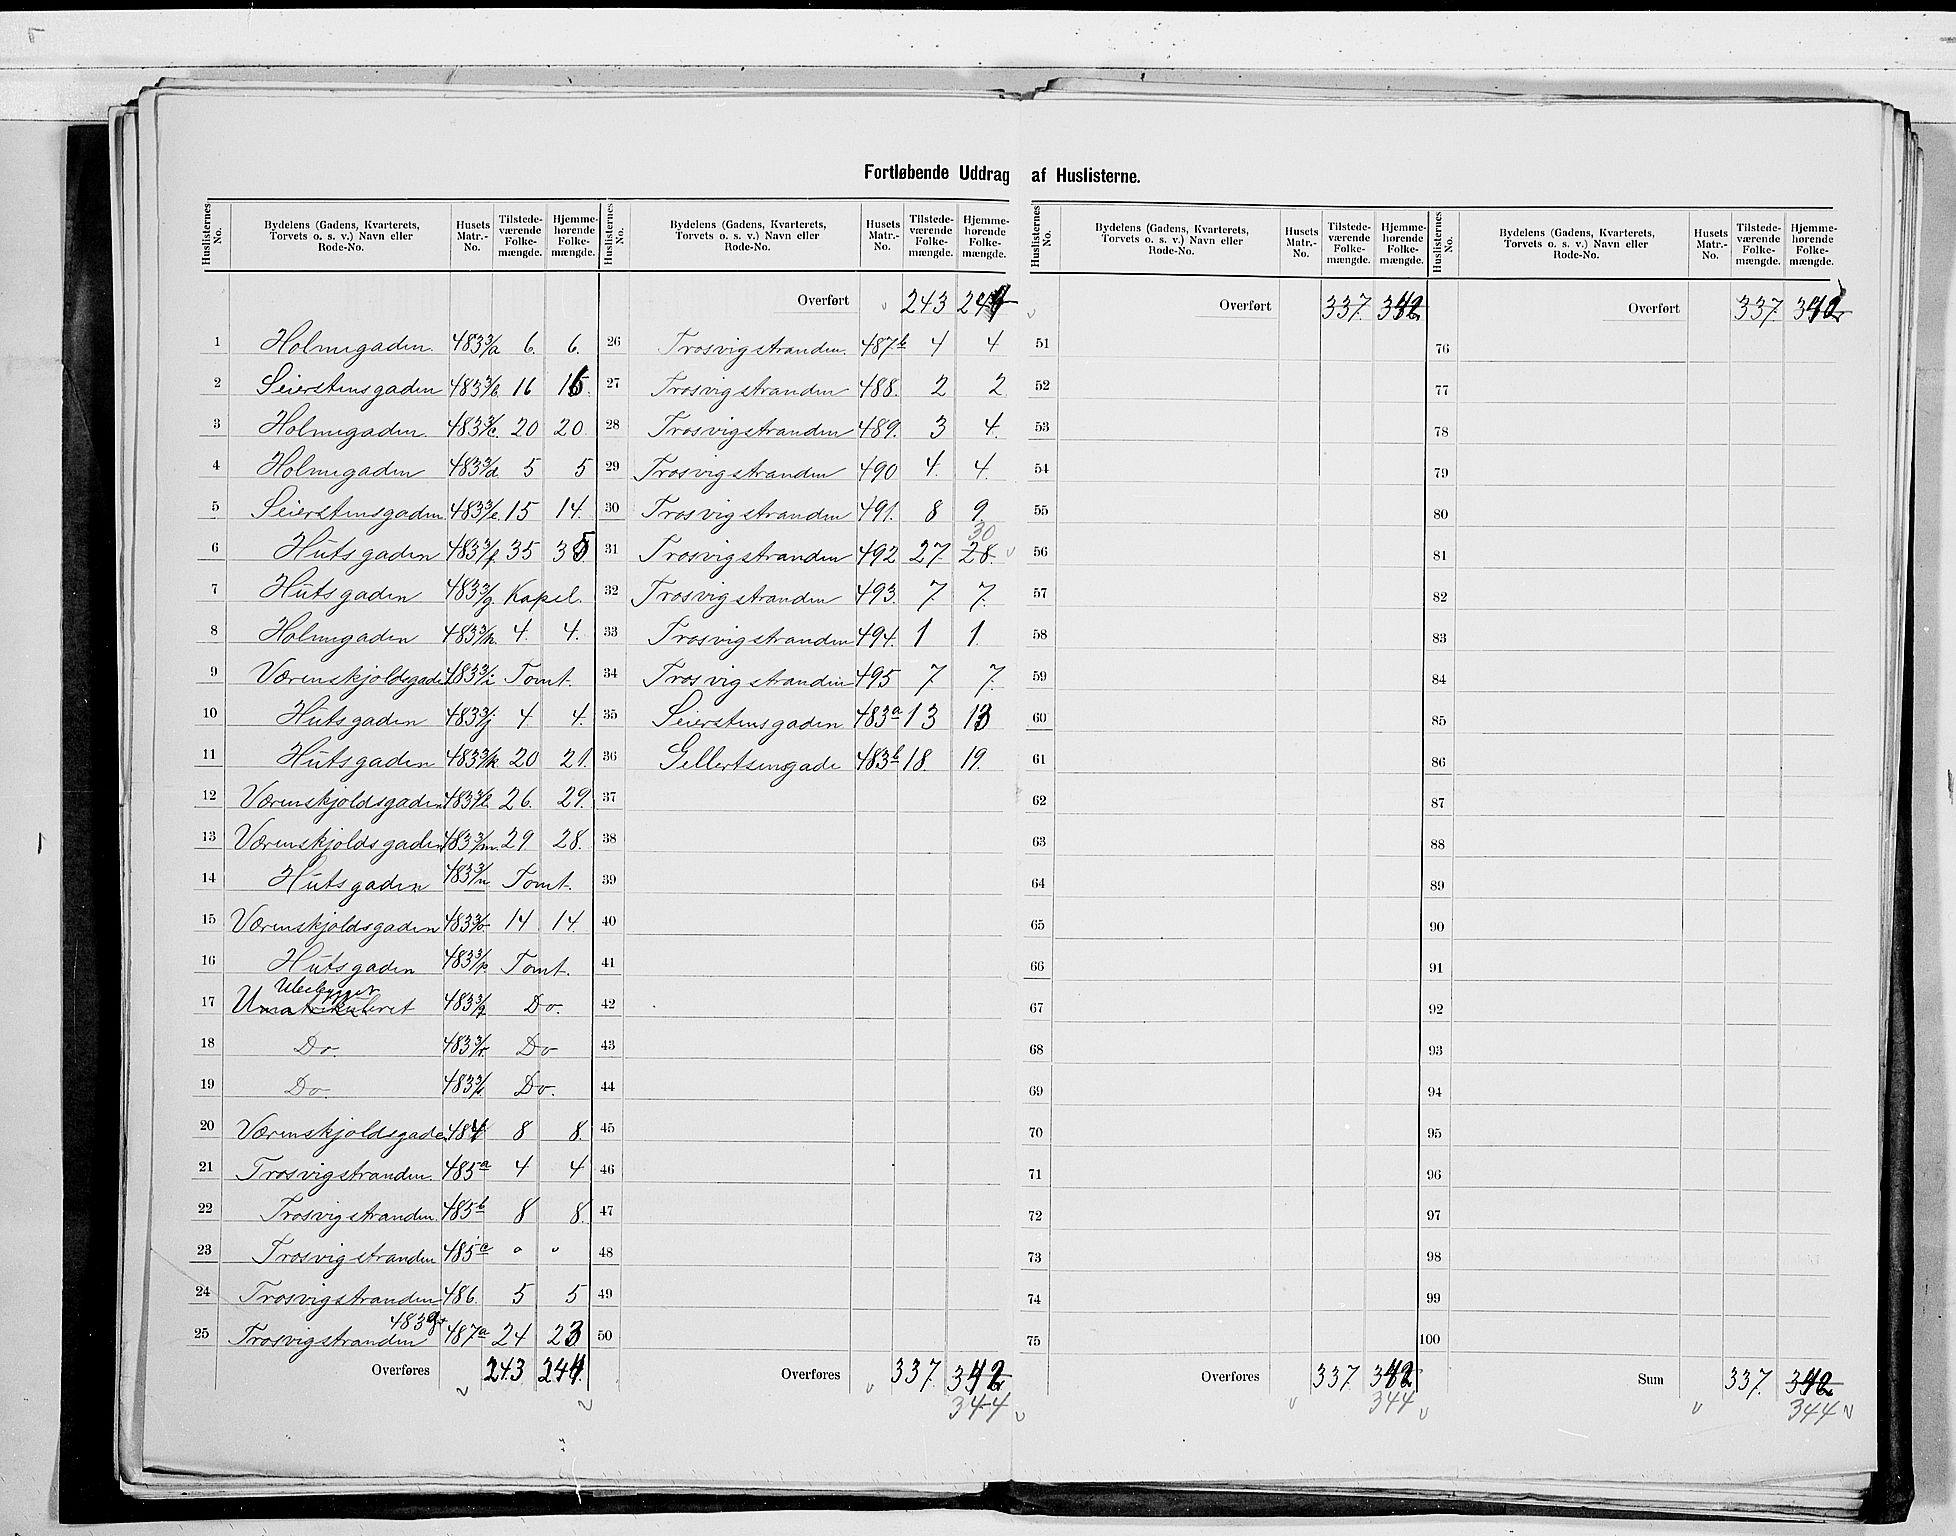 Fortløbende Uddrag af Huslisterne.
Huslisternes No. | Bydelens (Gadens, Kvarterets, Torvets o. s. v.) Navn eller Rode-No. | Husets Matr.-No. | Tilstede-værende Folke-mængde. | Hjemme-hørende Folke-mængde.
1 Holmegaden. 483 3/a 6. 6.
2 Seierstensgaden 483 3/b. 16 15.
3 Holmegaden. 483 3/c. 20 20.
4 Holmegaden 483 3/d. 5 5
5 Seierstensgaden 483 3/e. 15 14.
6 Hutsgaden 483 3/f. 35 35
7 Hutsgaden 483 3/g. Kapel.
8 Holmegaden 483 3/h. 4. 4.
9 Værenskjoldsgaden 483 3/i Tomt.
10 Hutsgaden 483 3/j 4 4.
11 Hutsgaden 483 3/k. 20 21.
12 Værenskjoldsgaden 483 3/l. 26. 29.
13 Værenskjoldsgaden 483 3/m. 29 28.
14 Hutsgaden 483 3/n Tomt.
15 Værenskjoldsgaden 483 3/o 14 14
16 Hutsgaden 483 3/p Tomt.
Ubebygget
17 Umatrikuleret 483 3/q Do.
18 Do. 483 3/r. Do
19 Do. 483 3/s Do.
20 Værenskjoldsgaden 484 8 8.
21 Trosvigstranden. 485a 4 4
22 Trosvigstranden. 485b 8 8.
23 Trosvigstranden 485c o o
24 Trosvigstranden 486. 5 5
25 Trosvigstranden 487a 24 23
Overføres 243 244.
Huslisternes No. | Bydelens (Gadens, Kvarterets, Torvets o. s. v.) Navn eller Rode-No. | Husets Matr.-No. | Tilstede-værende Folke-mængde. | Hjemme-hørende Folke-mængde.
Overført 243 244
26 Trosvigstranden. 487b 4 4
27 Trosvigstranden 488. 2 2
28 Trosvigstranden 489. 3 4.
29 Trosvigstranden 490 4. 4.
30 Trosvigstranden 491. 8 9
30
31 Trosvigstranden 492 27. 28.
32 Trosvigstranden 493. 7. 7.
33 Trosvigstranden 494. 1 1.
34 Trosvigstranden 495 7 7.
35 Seierstensgaden 483a 13 13
36 Gellertsensgade 483b 18. 19.
37
38
39
40
41
42
43
44
45
46
47
48
49
50
Overføres 337. 342
344
Huslisternes No. | Bydelens (Gadens, Kvarterets, Torvets o. s. v.) Navn eller Rode-No. | Husets Matr.-No. | Tilstede-værende Folke-mængde. | Hjemme-hørende Folke-mængde.
Overført 337. 342
51
52
53
54
55
56
57
58
59
60
61
62
63
64
65
66
67
68
69
70
71
72
73
74
75
Overføres 337. 342
344
Huslisternes No. | Bydelens (Gadens, Kvarterets, Torvets o. s. v.) Navn eller Rode-No. | Husets Matr.-No. | Tilstede-værende Folke-mængde. | Hjemme-hørende Folke-mængde.
Overført 337. 342
76
77
78
79
80
81
82
83
84
85
86
87
88
89
90
91
92
93
94
95
96
97
98
99
100
Sum 337. 342
344